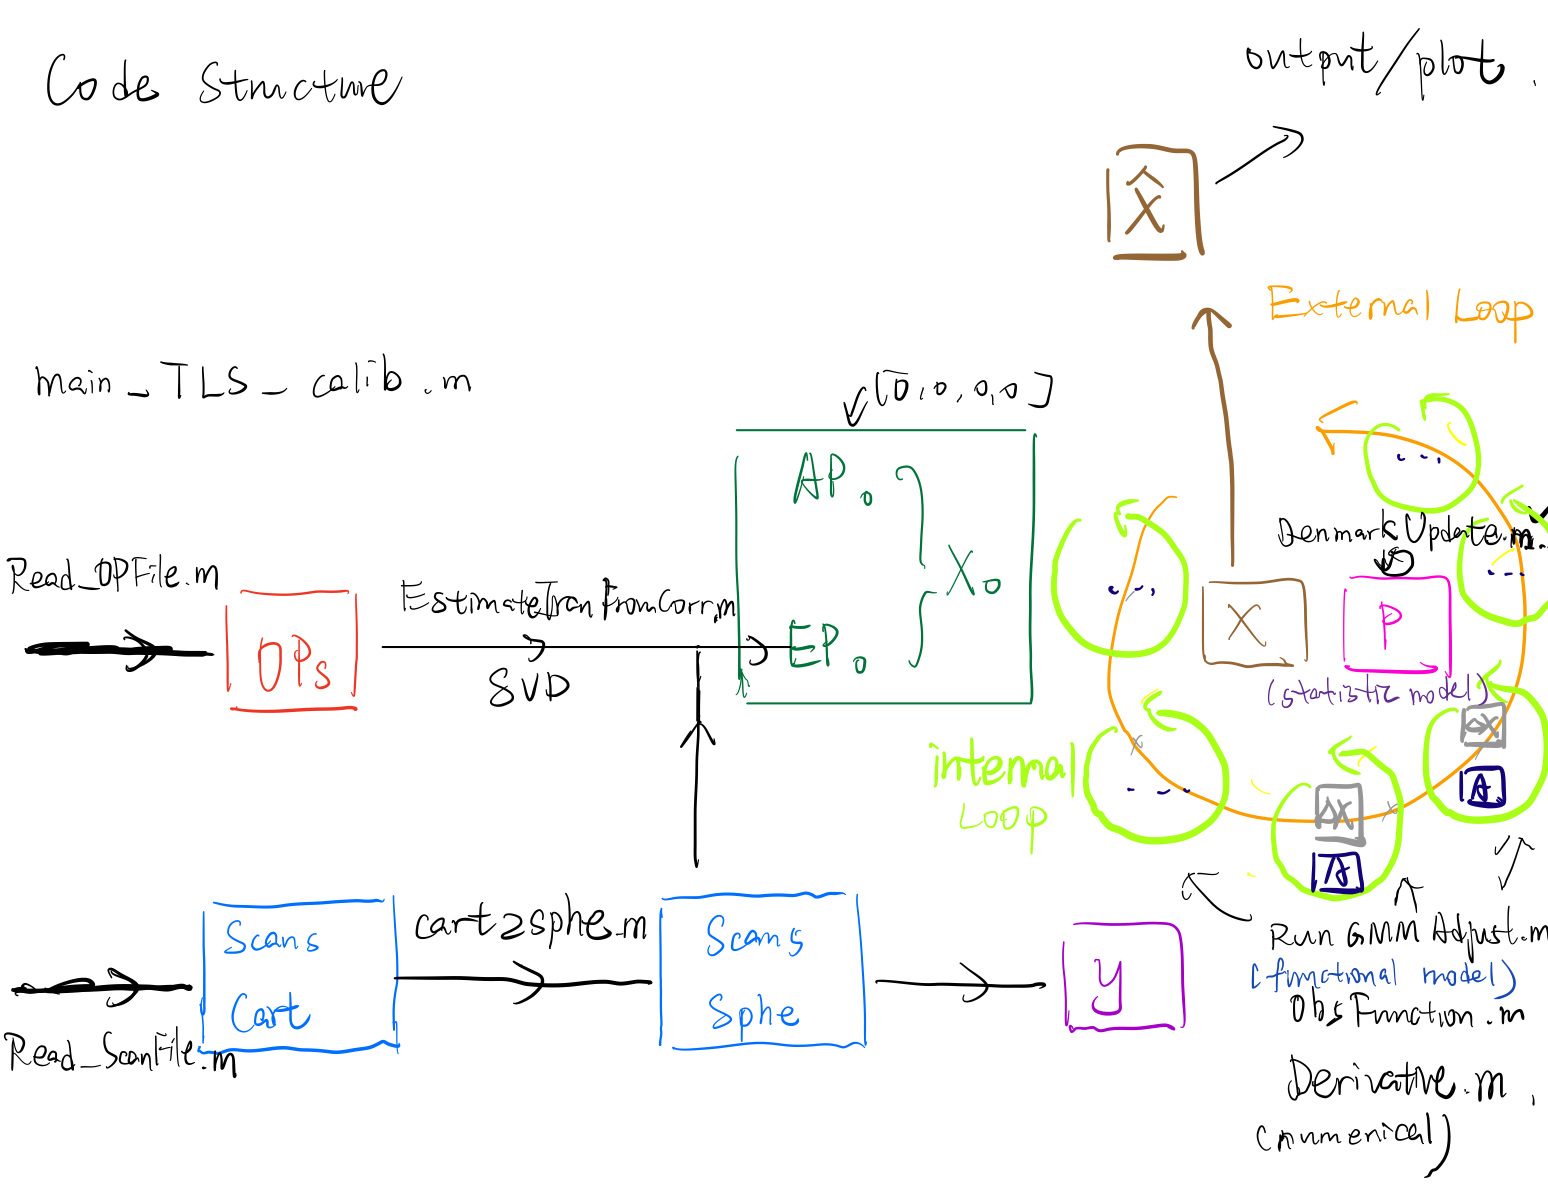 Code Structure
output/plot.
X̂
External Loop
main_TLS_calib.m
[0,0,0,0]
AP0
X0
EP0
Read_OPFile.m
OPs
EstimateTranFromCorr.m
SVD
DenmarkUpdate.m
...
...
...
...
X
P
(statistic model)
internal
Loop
ΔX
A
ΔX
A
Scans
Cart
cart2sphe.m
Scans
Sphe
y
Read_ScanFile.m
Run GMM Adjust.m
(functional model)
ObsFunction.m
Derivative.m,
(numerical)